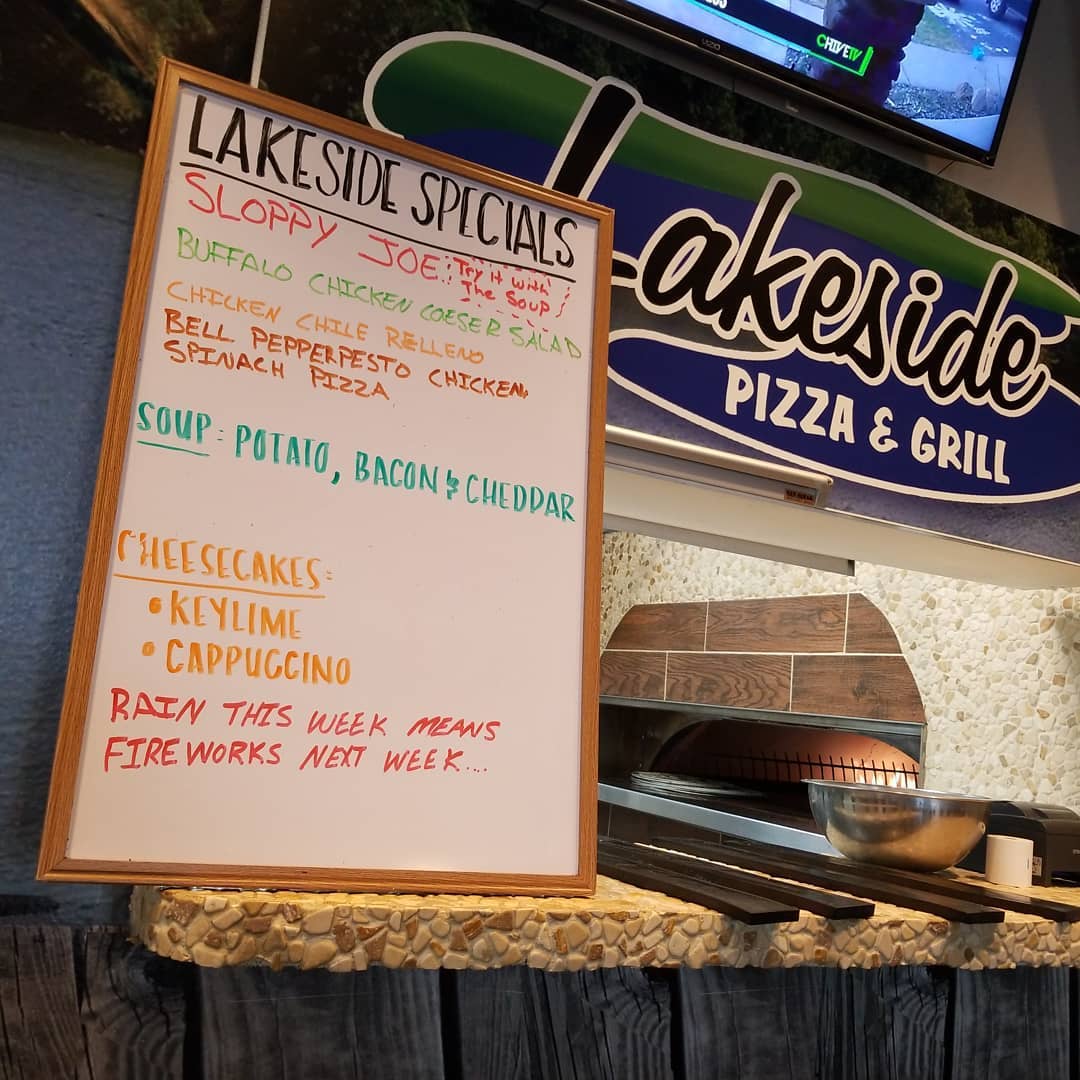 CHIVETV
VIZIO
Lakeside
PIZZA & GRILL
LAKESIDE SPECIALS
SLOPPY JOE: Try It with
The Soup
BUFFALO CHICKEN COESER SALAD
CHICKEN CHILE RELLENO
BELL PEPPERPESTO CHICKEN
SPINACH PIZZA
SOUP: POTATO, BACON & CHEDDAR
CHEESECAKES:
• KEYLIME
• CAPPUCCINO
RAIN THIS WEEK MEANS
FIREWORKS NEXT WEEK...